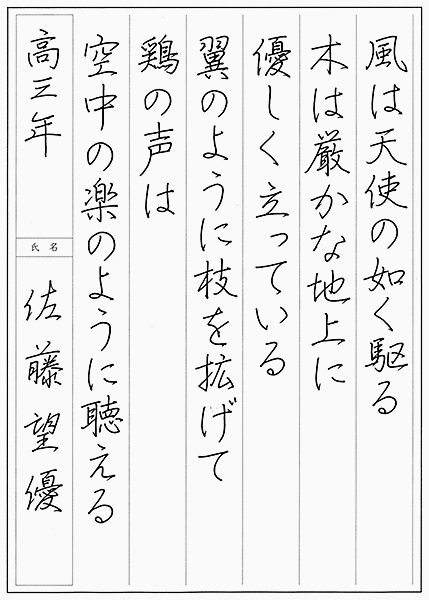 風は天使の如く駆る
木は厳かな地上に
優しく立っている
翼のように枝を拡げて
鶏の声は
空中の楽のように聴える
高三年
氏名
佐藤望優